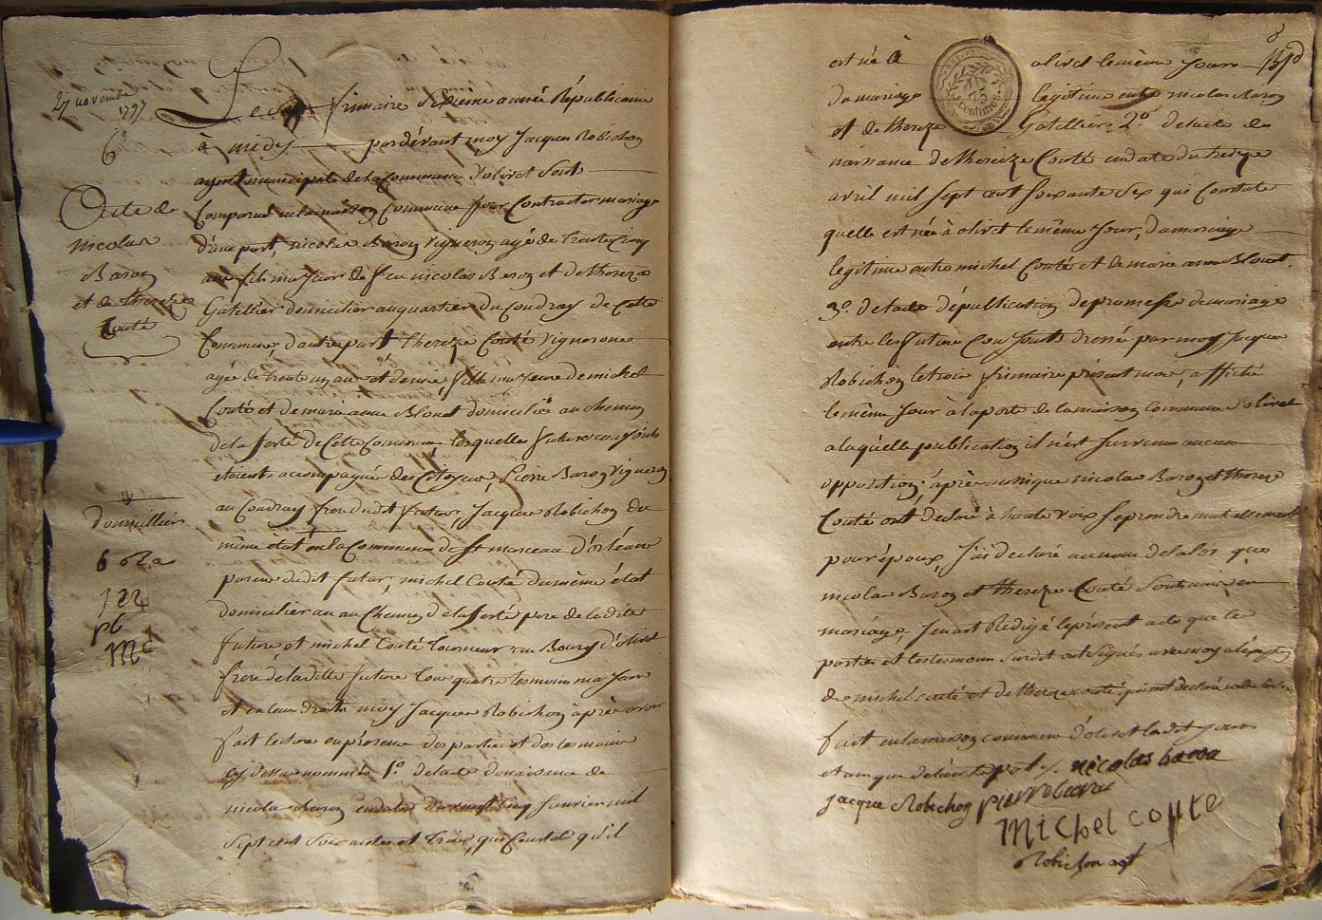 27 novembre
1797
6
Acte de
nicolas
Baron
et de thereze
Couté
Le Sept frimaire Sixieme année Républicaine
à midy pardevant moy Jacque Robichon
agent municipale de la Commune d'olivet Sont
Comparus en la maison Commune pour Contracter mariage
d'une part, nicolas Baron vigneron agé de trente cinq
ans fils majeur de feu nicolas Baron et de thereze
Gatellier domicilier au quartier du Coudray de Cette
Commune, d'autre part thereze Couté vigneronne
agée de trente un ans et demie, fille majeure de michel
Couté et de marie anne Blouet domiciliée au chemin
de la ferté de Cette Commune, lesquelles futurs conjoints
etoient accompagnés des Citoyens, Pierre Baron vigneron
au Coudray frere dudit futur, Jacque Robichon du
même état en la Commune de St marceau d'orléans
dudit futur, michel Couté du même état
domicilier au Chemin de la ferté pere de la dite
future et michel Couté Tourneur au Bourg d'olivet
frere de la ditte future tous quatre temoins majeurs
et moy Jacque Robichon après avoir
fait lecture en présence des parties et des temoins
cy dessus nommés 1º de l'acte de naissance de
nicolas baron en date du vingt cinq Janvier mil
Sept cent Soixante et trois, qui Constate qu'il
domicillier
pb
mc
est né à olivet le même Jour
du mariage légitime entre nicolas Baron
et de thereze Gatellier, 2º de l'acte de
naissance de thereze Couté en date du treize
avril mil Sept cent Soixante Six qui Constate
quelle est née à olivet le même Jour, du mariage
legitime entre michel Couté et de marie anne Blouet.
3º. de l'acte de publication de promesse de mariage
entre les futurs Conjoints dressé par moy Jacque
Robichon le trois frimaire présent mois, affiché
le même Jour à la porte de la maison Commune d'olivet
a laquelle publication il n'est Survenu aucune
opposition; après nicolas Baron et thereze
Couté ont declaré à haute voix Se prendre mutuellement
pour époux, J'ai declaré au nom de la loi que
nicolas Baron et thereze Couté Sont unis en
mariage. J'en ait Rédigé le présent acte que les
parties et les temoins Susdit ont Signés avec moy a l'exception
de michel couté et de thereze couté qui ont declaré
fait en la maison commune d'olivet ledit Jour
et an que dessus nicolas baron
Jacque Robichon pierre baron
Michel coute
Robichon agt